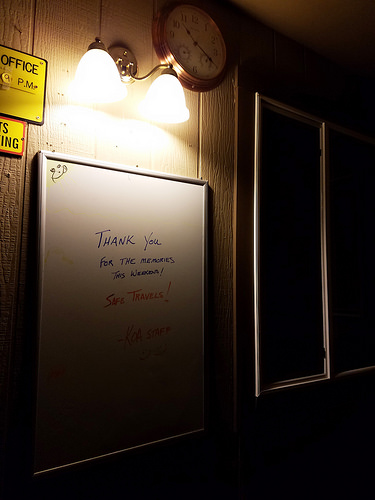 OFFICE
P.M.
TS
ING
THANK YOU
FOR THE MEMORIES
THIS WEEKEND!
SAFE TRAVELS!
-KOA STAFF